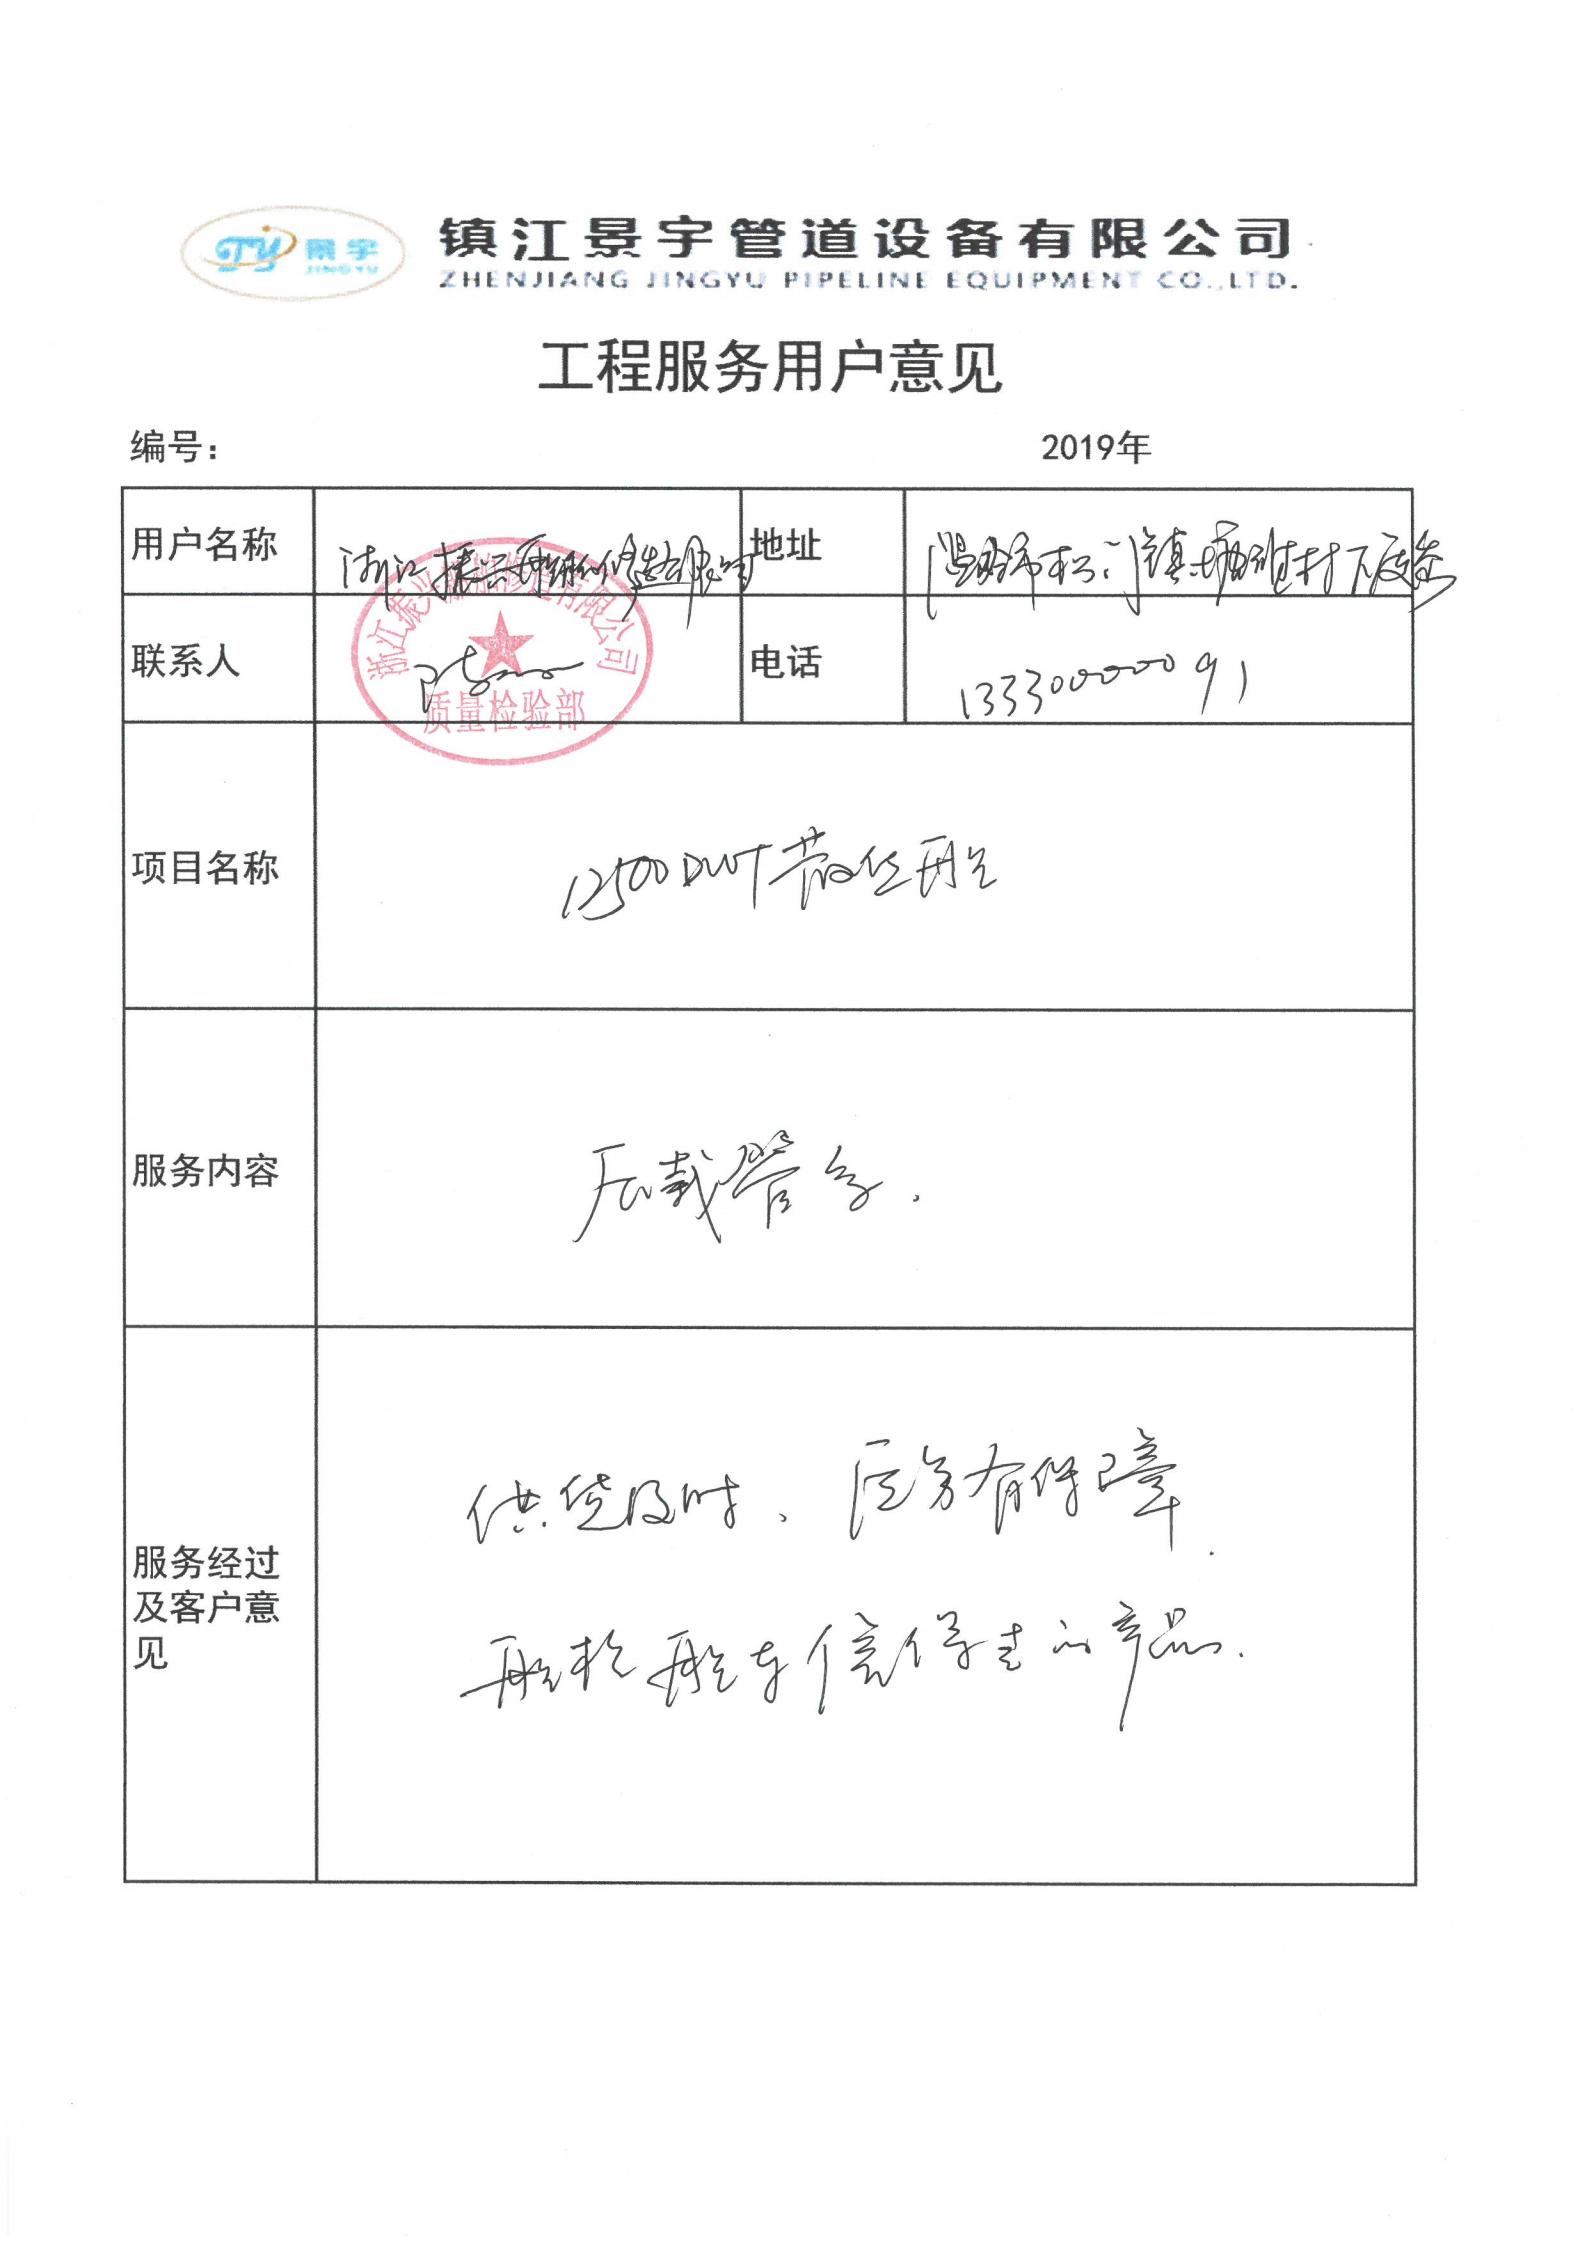 JY 景宇
JINGYU
镇江景宇管道设备有限公司
ZHENJIANG JINGYU PIPELINE EQUIPMENT CO.,LTD.
工程服务用户意见
编号:
2019年
用户名称
浙江振兴船舶修造有限公司
地址
温岭市松门镇
联系人
浙江振兴船舶修造有限公司
质量检验部
电话
13330000091
项目名称
12500DWT散货船
服务内容
压载管系.
服务经过
及客户意
见
供货及时、质务有保障.
船检船东信得过的产品.